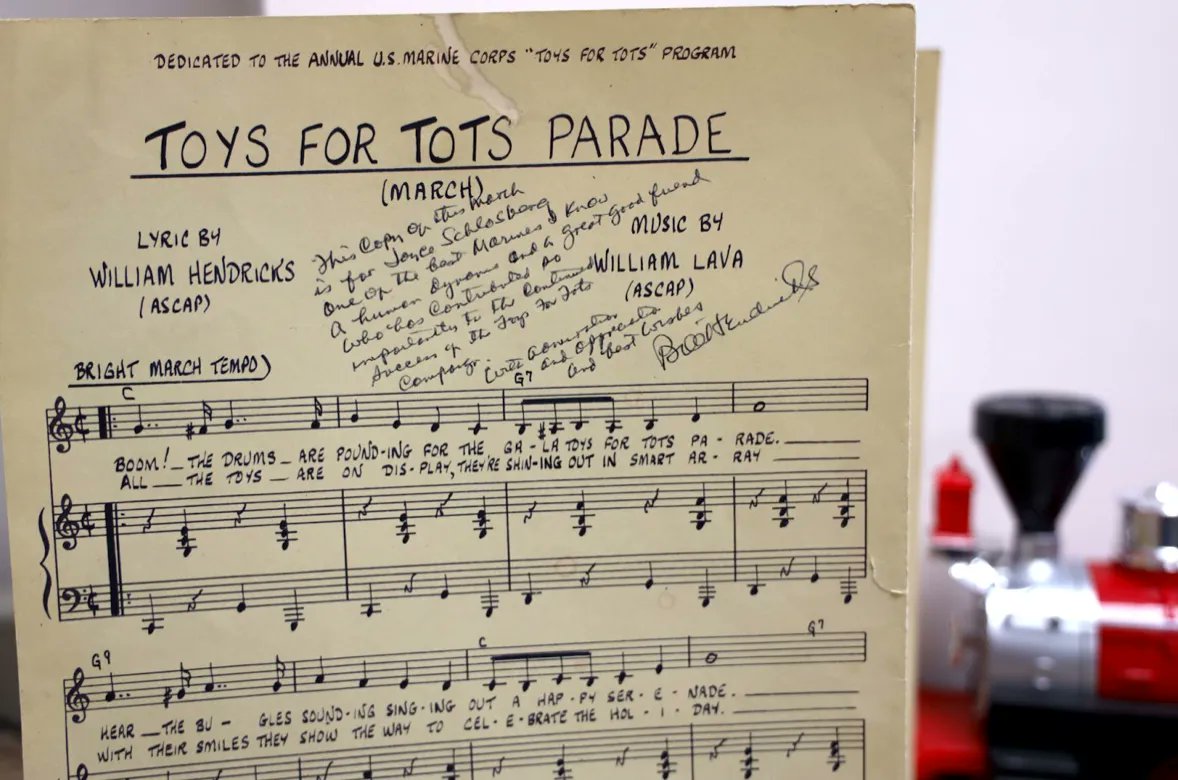 DEDICATED TO THE ANNUAL U.S. MARINE CORPS "TOYS FOR TOTS" PROGRAM
TOYS FOR TOTS PARADE
(MARCH)
LYRIC BY
WILLIAM HENDRICKS
(ASCAP)
This Copy of this march
is for Joyce Schlosberg
One of the best Marines I know
A human dynamo and a great good friend
who has contributed so
importantly to the continued
success of the Toys For Tots
Campaign.
With admiration
and appreciation
and best wishes
Bill Hendricks
MUSIC BY
WILLIAM LAVA
(ASCAP)
BRIGHT MARCH TEMPO)
C G7
BOOM! _ THE DRUMS _ ARE POUND-ING FOR THE GA - LA TOYS FOR TOTS PA - RADE.
ALL _ THE TOYS _ ARE ON DIS-PLAY, THEY'RE SHIN-ING OUT IN SMART AR - RAY
G9 C G7
HEAR _ THE BU - GLES SOUND-ING SING-ING OUT A HAP-PY SER - E - NADE.
WITH THEIR SMILES THEY SHOW THE WAY TO CEL-E-BRATE THE HOL - I - DAY.